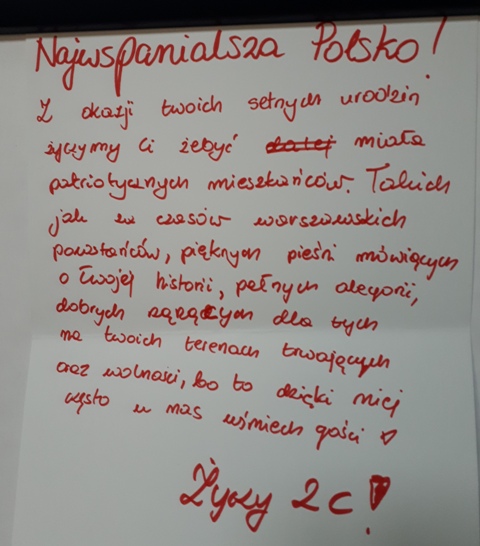 Najwspanialsza Polsko!
Z okazji twoich setnych urodzin
życzymy Ci żebyć dalej miała
patriotycznych mieszkańców. Takich
jak w czasów warszawskich
powstańców, pięknych pieśni mówiących
o Twojej historii, pełnych alegorii,
dobrych rządzących dla tych
na twoich terenach trwających
oraz wolności, bo to dzięki niej
często w nas uśmiech gości
Życzy 2c!